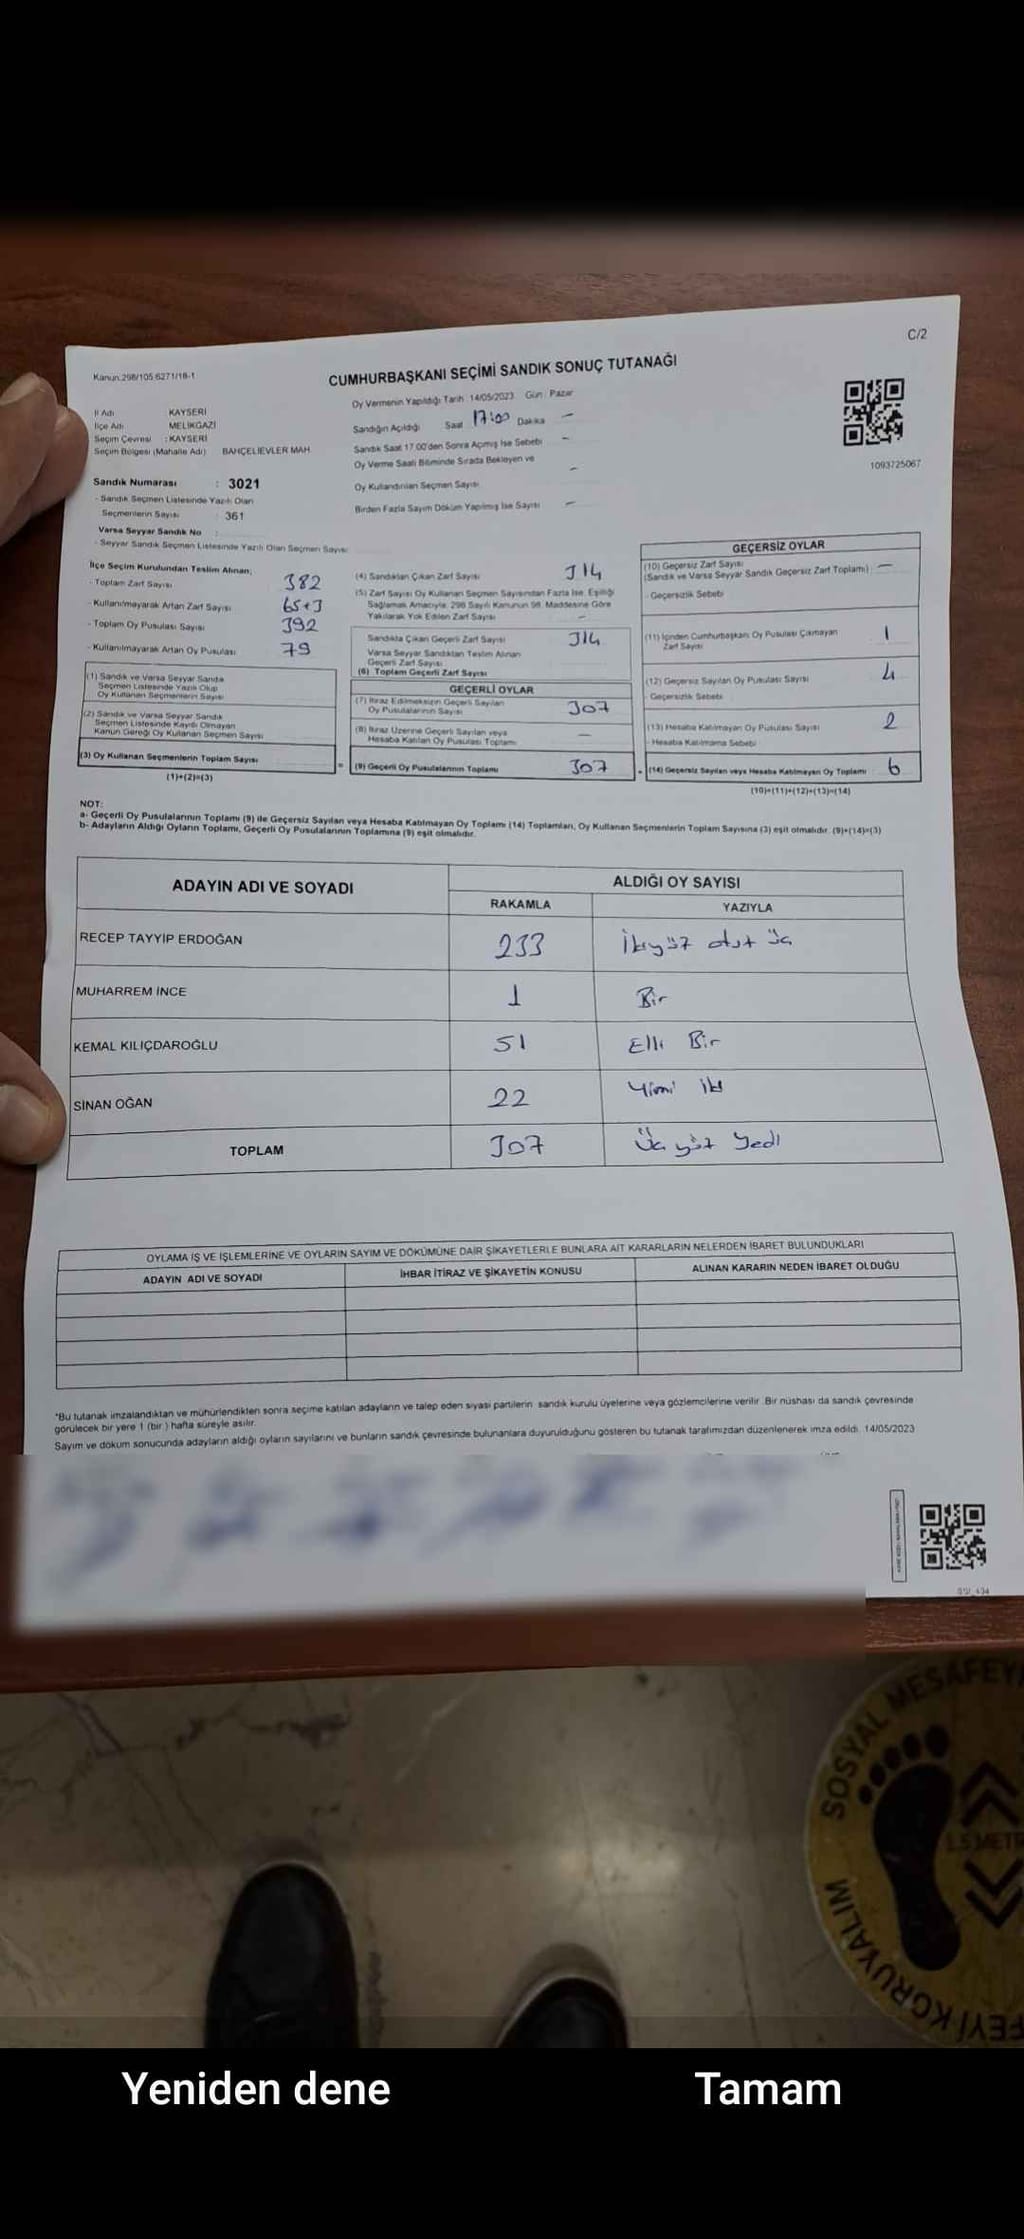 C/2
Kanun:298/105 6271/18-1
CUMHURBAŞKANI SEÇİMİ SANDIK SONUÇ TUTANAĞI
Oy Vermenin Yapıldığı Tarih 14/05/2023 Gün : Pazar
İl Adı KAYSERİ
İlçe Adı MELİKGAZİ
Seçim Çevresi : KAYSERİ
Seçim Bölgesi (Mahalle Adı) BAHÇELİEVLER MAH
Sandığın Açıldığı Saat 17:00 Dakika —
Sandık Saat 17.00'den Sonra Açmış İse Sebebi –
Oy Verme Saati Bitiminde Sırada Bekleyen ve
Oy Kullandırılan Seçmen Sayısı –
Birden Fazla Sayım Döküm Yapılmış İse Sayısı –
1093725067
Sandık Numarası : 3021
- Sandık Seçmen Listesinde Yazılı Olan
Seçmenlerin Sayısı : 361
Varsa Seyyar Sandık No :
- Seyyar Sandık Seçmen Listesinde Yazılı Olan Seçmen Sayısı
İlçe Seçim Kurulundan Teslim Alınan;
- Toplam Zarf Sayısı 382
- Kullanılmayarak Artan Zarf Sayısı 65+3
- Toplam Oy Pusulası Sayısı 392
- Kullanılmayarak Artan Oy Pusulası 79
(1) Sandık ve Varsa Seyyar Sandık
Seçmen Listesinde Yazılı Olup
Oy Kullanan Seçmenlerin Sayısı
(2) Sandık ve Varsa Seyyar Sandık
Seçmen Listesinde Kayıtlı Olmayan
Kanun Gereği Oy Kullanan Seçmen Sayısı
(3) Oy Kullanan Seçmenlerin Toplam Sayısı
(1)+(2)=(3)
(4) Sandıktan Çıkan Zarf Sayısı 314
(5) Zarf Sayısı Oy Kullanan Seçmen Sayısından Fazla İse, Eşitliği
Sağlamak Amacıyla, 298 Sayılı Kanunun 98. Maddesine Göre
Yakılarak Yok Edilen Zarf Sayısı –
Sandıkta Çıkan Geçerli Zarf Sayısı 314
Varsa Seyyar Sandıktan Teslim Alınan
Geçerli Zarf Sayısı
(6) Toplam Geçerli Zarf Sayısı
GEÇERLİ OYLAR
(7) İtiraz Edilmeksizin Geçerli Sayılan
Oy Pusulalarının Sayısı 307
(8) İtiraz Üzerine Geçerli Sayılan veya
Hesaba Katılan Oy Pusulası Toplamı —
= (9) Geçerli Oy Pusulalarının Toplamı 307
GEÇERSİZ OYLAR
(10) Geçersiz Zarf Sayısı
(Sandık ve Varsa Seyyar Sandık Geçersiz Zarf Toplamı) —
- Geçersizlik Sebebi
(11) İçinden Cumhurbaşkanı Oy Pusulası Çıkmayan
Zarf Sayısı 1
(12) Geçersiz Sayılan Oy Pusulası Sayısı 4
- Geçersizlik Sebebi
(13) Hesaba Katılmayan Oy Pusulası Sayısı 2
- Hesaba Katılmama Sebebi
+ (14) Geçersiz Sayılan veya Hesaba Katılmayan Oy Toplamı 6
(10)+(11)+(12)+(13)=(14)
NOT:
a- Geçerli Oy Pusulalarının Toplamı (9) ile Geçersiz Sayılan veya Hesaba Katılmayan Oy Toplamı (14) Toplamları, Oy Kullanan Seçmenlerin Toplam Sayısına (3) eşit olmalıdır. (9)+(14)=(3)
b- Adayların Aldığı Oyların Toplamı, Geçerli Oy Pusulalarının Toplamına (9) eşit olmalıdır.
ADAYIN ADI VE SOYADI
ALDIĞI OY SAYISI
RAKAMLA YAZIYLA
RECEP TAYYİP ERDOĞAN 233 İkiyüz otuz üç
MUHARREM İNCE 1 Bir
KEMAL KILIÇDAROĞLU 51 Elli Bir
SİNAN OĞAN 22 Yirmi iki
TOPLAM 307 Üç yüz Yedi
OYLAMA İŞ VE İŞLEMLERİNE VE OYLARIN SAYIM VE DÖKÜMÜNE DAİR ŞİKAYETLERLE BUNLARA AİT KARARLARIN NELERDEN İBARET BULUNDUKLARI
ADAYIN ADI VE SOYADI İHBAR İTİRAZ VE ŞİKAYETİN KONUSU ALINAN KARARIN NEDEN İBARET OLDUĞU
*Bu tutanak imzalandıktan ve mühürlendikten sonra seçime katılan adayların ve talep eden siyasi partilerin sandık kurulu üyelerine veya gözlemcilerine verilir. Bir nüshası da sandık çevresinde
görülecek bir yere 1 (bir ) hafta süreyle asılır.
Sayım ve döküm sonucunda adayların aldığı oyların sayılarını ve bunların sandık çevresinde bulunanlara duyurulduğunu gösteren bu tutanak tarafımızdan düzenlenerek imza edildi. 14/05/2023
SOSYAL MESAFEYİ
1.5 METRE
KORUYALIM
Yeniden dene
Tamam